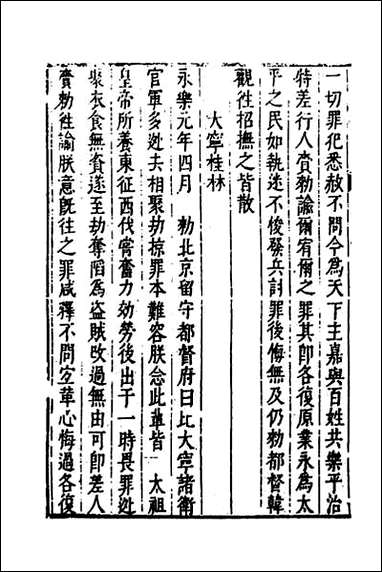 一切罪犯悉赦不問今爲天下主嘉與百姓共樂平治
特差行人賫勑諭爾宥爾之罪其即各復原業永爲太
平之民如執迷不悛發兵討罪後悔無及仍勑都督韓
觀徃招撫之皆散
大寧桂林
永樂元年四月　勑北京留守都督府曰比大寧諸衛
官軍多逃去相聚劫掠罪本難容朕念此軰皆　太祖
皇帝所養東征西伐嘗奮力効勞後出于一時畏罪逃
聚衣食無資遂至劫奪蹈爲盗賊攺過無由可卽差人
賫勑徃諭朕意旣往之罪咸釋不問宜革心悔過各復